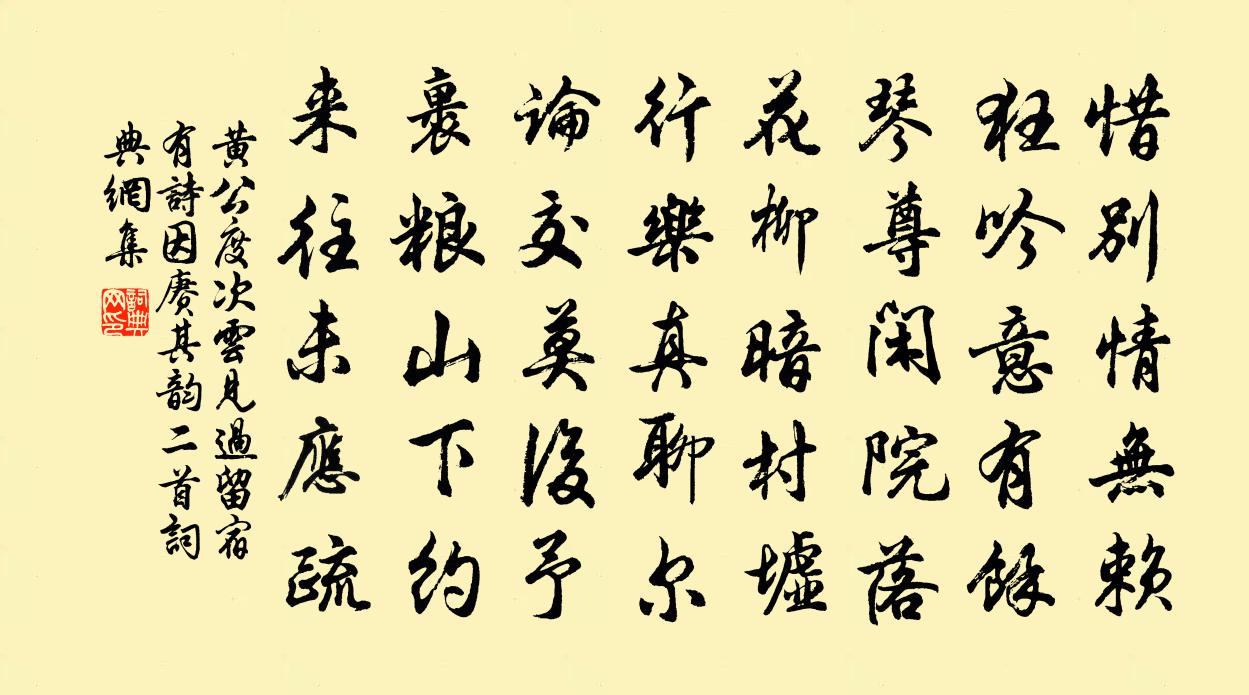 惜别情無賴
狂吟意有餘
琴尊閑院落
花柳暗村墟
行樂真聊尔
論交莫後予
裹粮山下約
来往未應疏
黄公度次雲見過留宿
有詩因賡其韵二首詞
典網集
詞典